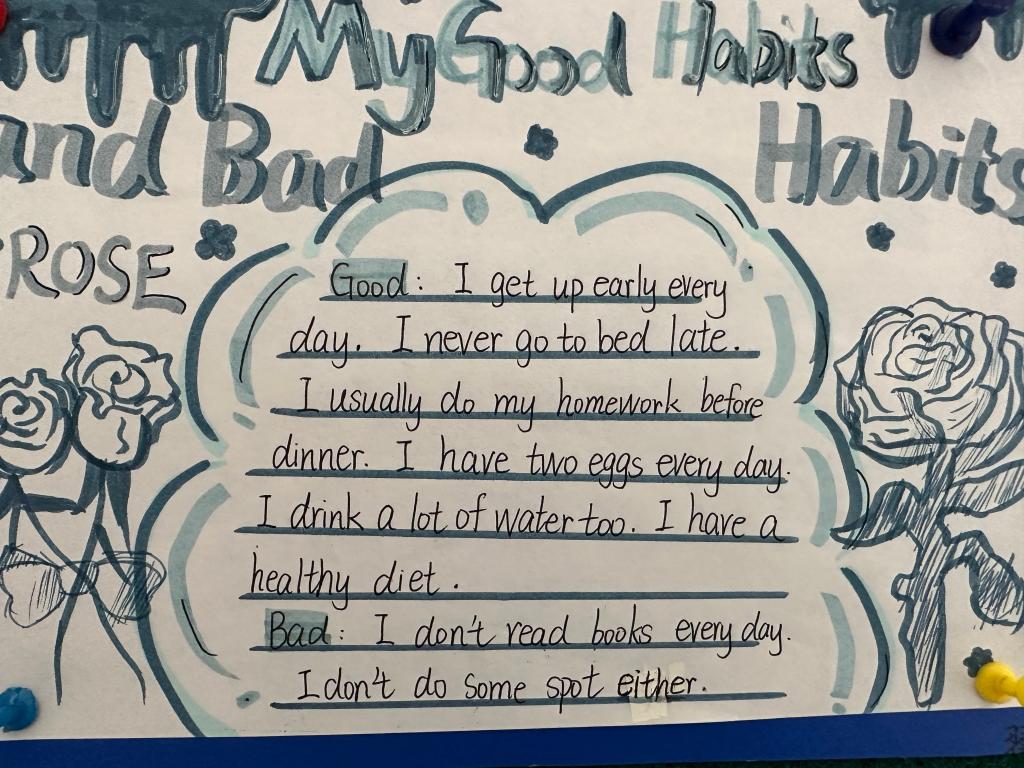 My Good Habits
and Bad Habits
ROSE
Good: I get up early every
day. I never go to bed late.
I usually do my homework before
dinner. I have two eggs every day.
I drink a lot of water too. I have a
healthy diet.
Bad: I don't read books every day.
I don't do some spot either.